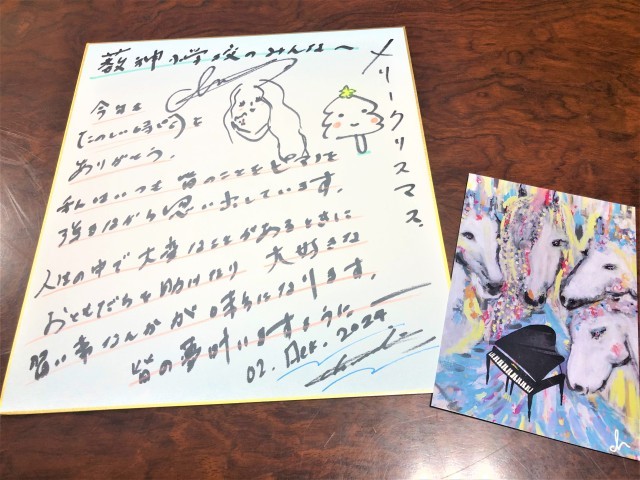 メリークリスマス
薮神小学校のみんなへ
今年も
たのしい時間を
ありがとう。
私はいつも皆のことをピアノを
弾きながら思い出しています。
人生の中で大変なことがあるときに
おともだちを助けたり 大好きな
習い事なんかが 味方になります。
皆の夢叶いますように
02. Dec. 2024